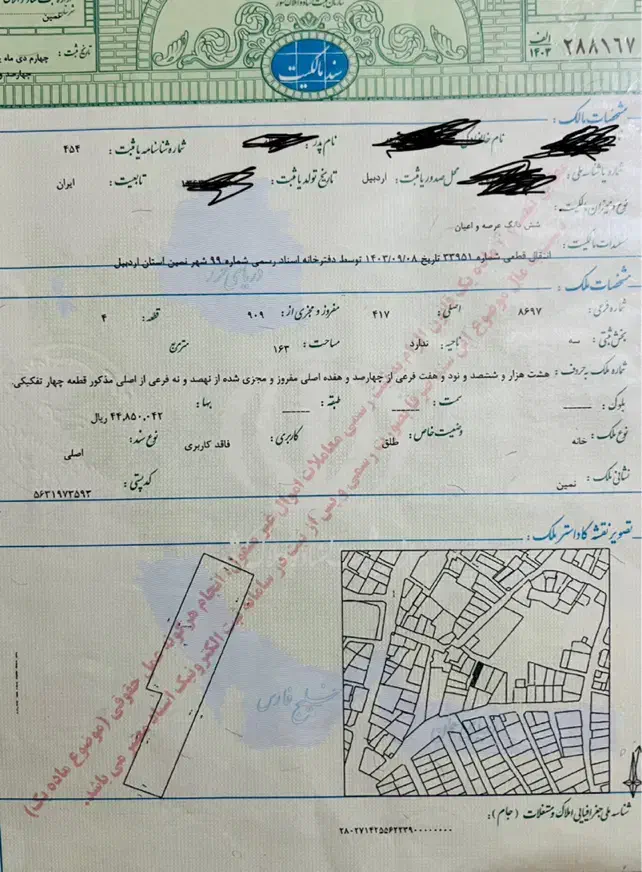 سازمان ثبت اسناد و املاک کشور
نمین
تاریخ ثبت : چهارم دی ماه
سند مالکیت
الف ۱۴۰۳ ۲۸۸۱۶۷
مشخصات مالک :
نام خانوادگی نام پدر : شماره شناسنامه یا ثبت : ۴۵۴
شماره یا شناسه ملی : محل صدور یا ثبت : اردبیل تاریخ تولد یا ثبت : تابعیت : ایران
نوع و میزان مالکیت : شش دانگ عرصه و اعیان
مستندات مالکیت :
انتقال قطعی, شماره ۳۳۹۵۱ تاریخ ۱۴۰۳/۰۹/۰۸ توسط دفترخانه اسناد رسمی شماره ۹۹ شهر نمین استان اردبیل
دریای خزر
مشخصات ملک :
شماره فرعی : ۸۶۹۷ اصلی : ۴۱۷ مفروز و مجزی از : ۹۰۹ قطعه : ۴
بخش ثبتی : سه ناحیه : ندارد مساحت : ۱۶۳ متر مربع
شماره ملک به حروف : هشت هزار و ششصد و نود و هفت فرعی از چهارصد و هفده اصلی مفروز و مجزی شده از نهصد و نه فرعی از اصلی مذکور قطعه چهار تفکیکی.
بلوک : سمت : طبقه : بها : ۴۴,۸۵۰,۰۴۲ ریال
نوع ملک : خانه وضعیت خاص : طلق کاربری : فاقد کاربری نوع سند : اصلی
نشانی ملک : نمین کد پستی : ۵۶۳۱۹۷۳۵۹۳
تصویر نقشه کاداستر ملک :
خلیج فارسی
شناسه ملی جغرافیایی املاک و مستغلات (جام) :
۲۸۰۲۷۱۴۲۵۵۶۲۲۳۹۰۰۰۰۰۰۰۰